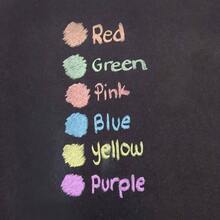 Red
Green
Pink
Blue
yellow
Purple